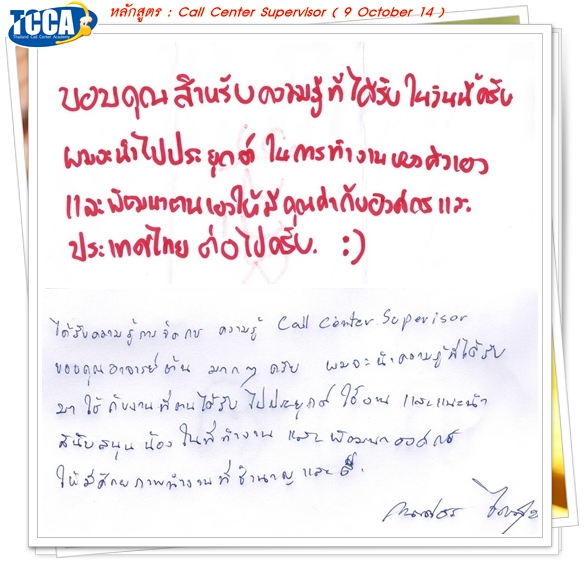 หลักสูตร : Call Center Supervisor ( 9 October 14 )
TCCA
Thailand Call Center Academy
ขอบคุณสำหรับความรู้ที่ได้รับในวันนี้ครับ
ผมจะนำไปประยุกต์ ในการทำงานของตัวเอง
และพัฒนาตนเองให้มีคุณค่ากับองค์กรและ
ประเทศไทย ต่อไปครับ. :)
ได้รับความรู้การจัดการ ความรู้ Call Center Supervisor
ขอบคุณอาจารย์ต้น มากๆ ครับ ผมจะนำความรู้ที่ได้รับ
มาใช้กับงานที่ตนได้รับ ไปประยุกต์ ใช้งาน และแนะนำ
สนับสนุน น้อง ในที่ทำงาน และ พัฒนาองค์กร
ให้มีศักยภาพทำงานที่ชำนาญและดี.